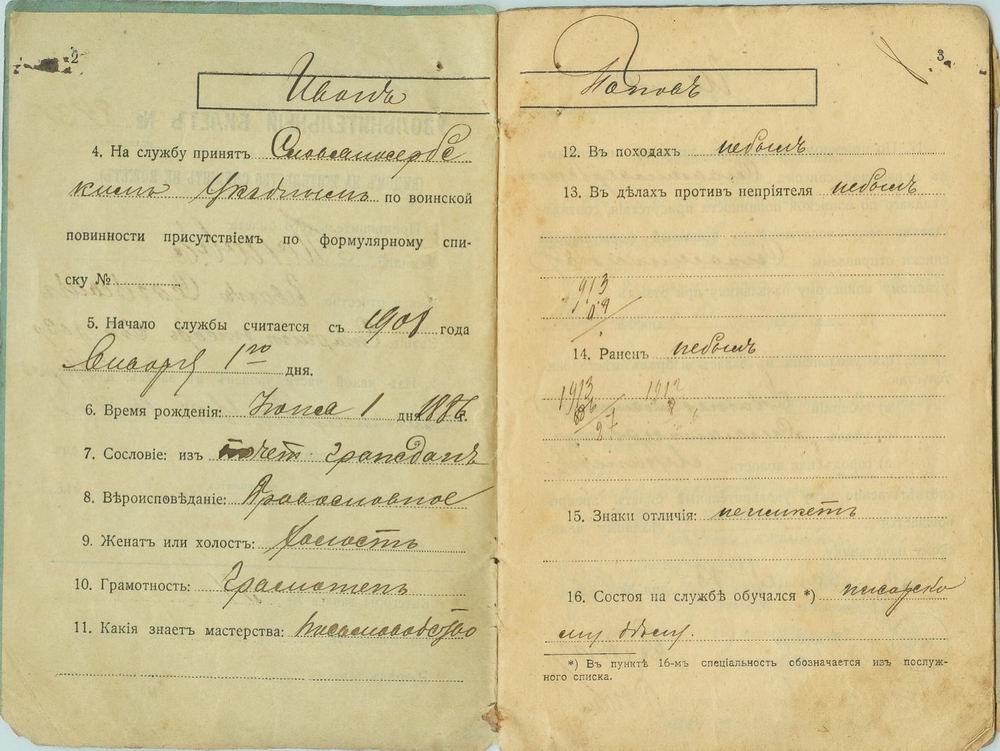 2
Иванъ
4. На службу принятъ Славяносербс
кимъ Уѣзднымъ по воинской
повинности присутствіемъ по формулярному спи-
ску №
5. Начало службы считается съ 1908 года
Января 1го дня.
6. Время рожденія: 1 дня 1886 г.
7. Сословіе: изъ почет. гражданъ
8. Вѣроисповѣданіе: Православное
9. Женатъ или холостъ: Холостъ
10. Грамотность: Грамотенъ
11. Какія знаетъ мастерства:
3
Поповъ
12. Въ походахъ небылъ
13. Въ дѣлахъ противъ непріятеля небылъ
1913
14. Раненъ небылъ
1913 1912
27
15. Знаки отличія: неимѣетъ
16. Состоя на службѣ обучался *) писарско
му дѣлу.
*) Въ пунктѣ 16-мъ спеціальность обозначается изъ послуж-
ного списка.